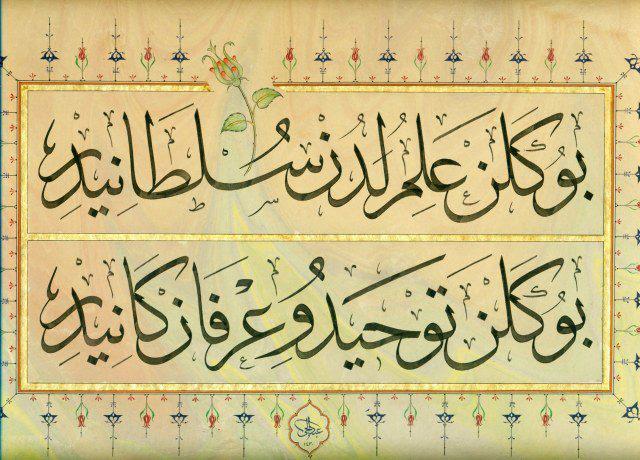 بو كلن علم لدن سلطانيدر
بو كلن توحيد و عرفان كانيدر